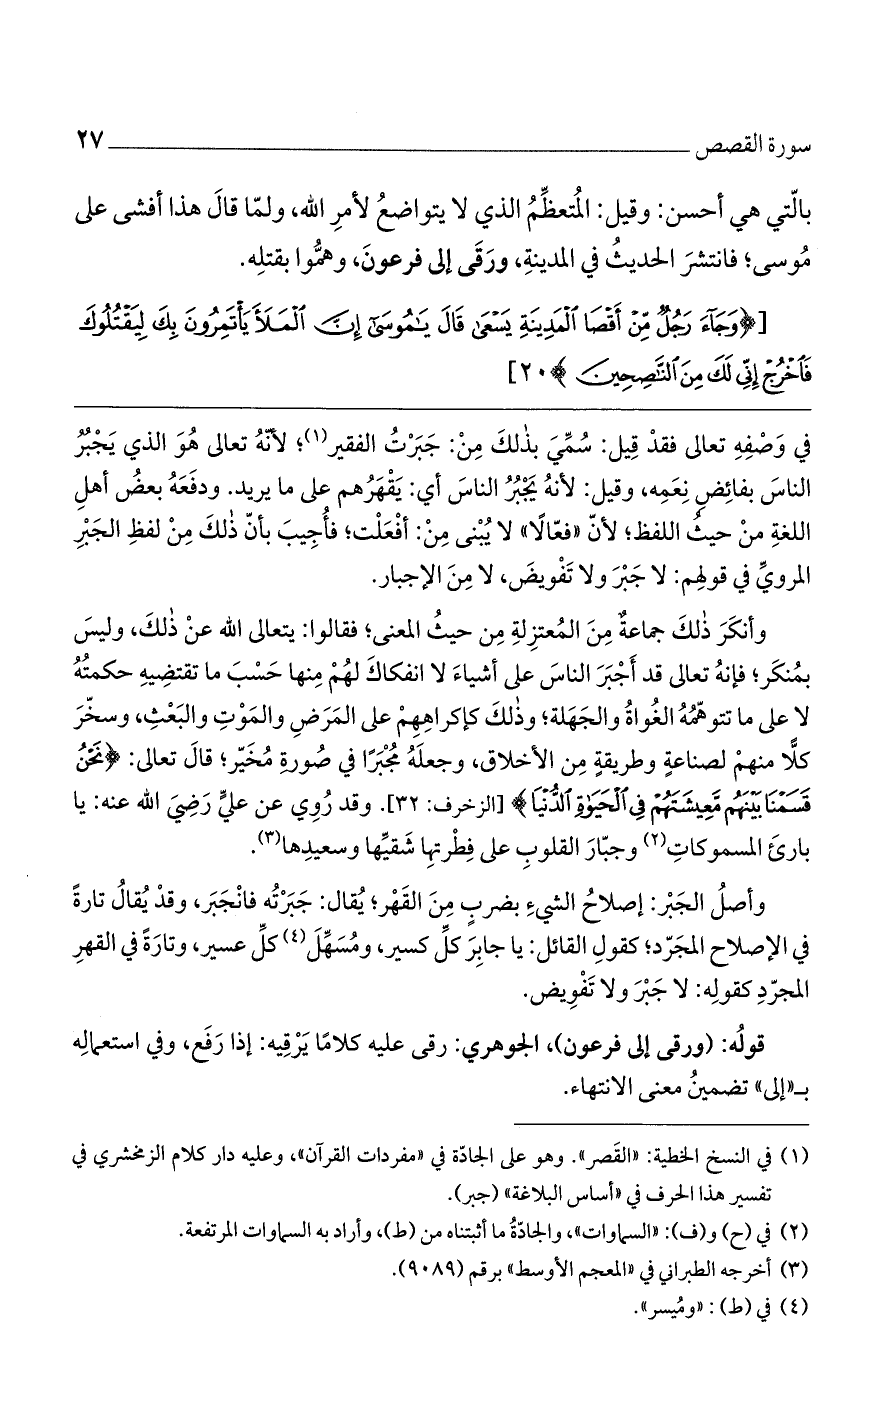 سورة القصص ٢٧
بالّتي هي أحسن: وقيل: المُتعظِّمُ الذي لا يتواضعُ لأمرِ الله، ولمّا قالَ هذا أفشى على
مُوسى؛ فانتشرَ الحديثُ في المدينةِ، ورَقَى إلى فرعونَ، وهمُّوا بقتلِه.
[﴿وَجَآءَ رَجُلٌ مِّنْ أَقْصَا ٱلْمَدِينَةِ يَسْعَىٰ قَالَ يَٰمُوسَىٰٓ إِنَّ ٱلْمَلَأَ يَأْتَمِرُونَ بِكَ لِيَقْتُلُوكَ
فَٱخْرُجْ إِنِّي لَكَ مِنَ ٱلنَّٰصِحِينَ﴾ ٢٠]
في وَصْفِهِ تعالى فقدْ قِيل: سُمِّيَ بذٰلكَ مِنْ: جَبَرْتُ الفقير(١)؛ لأنّهُ تعالى هُوَ الذي يَجْبُرُ
الناسَ بفائِضِ نِعَمِه، وقيل: لأنهُ يَجْبُرُ الناسَ أي: يَقْهَرُهم على ما يريد. ودفَعَهُ بعضُ أهلِ
اللغةِ منْ حيثُ اللفظ؛ لأنّ «فعّالًا» لا يُبْنى مِنْ: أفْعَلْت؛ فأُجِيبَ بأنّ ذٰلكَ مِنْ لفظِ الجَبْرِ
المرويِّ في قولهِم: لا جَبْرَ ولا تَفْويضَ، لا مِنَ الإجبار.
وأنكَرَ ذٰلكَ جماعةٌ مِنَ المُعتزِلةِ مِن حيثُ المعنى؛ فقالوا: يتعالى الله عنْ ذٰلكَ، وليسَ
بمُنكَر؛ فإنهُ تعالى قد أَجْبَرَ الناسَ على أشياءَ لا انفكاكَ لهُمْ مِنها حَسْبَ ما تقتضِيهِ حكمتُهُ
لا على ما تتوهّمُهُ الغُواةُ والجَهَلة؛ وذٰلكَ كإكراهِهِمْ على المَرَضِ والمَوْتِ والبَعْثِ، وسخّرَ
كلًّا منهمْ لصناعةٍ وطريقةٍ مِن الأخلاق، وجعلَهُ مُجْبَرًا في صُورةِ مُخَيّر؛ قالَ تعالى: ﴿نَحْنُ
قَسَمْنَا بَيْنَهُم مَّعِيشَتَهُمْ فِي ٱلْحَيَوٰةِ ٱلدُّنْيَا﴾ [الزخرف: ٣٢]. وقد رُوِي عن عليٍّ رَضِيَ الله عنه: يا
بارئَ المسموكاتِ(٢) وجبّارَ القلوبِ على فِطْرتِها شَقيِّها وسعيدِها(٣).
وأصلُ الجَبْر: إصلاحُ الشيءِ بضربٍ مِنَ القَهْر؛ يُقال: جَبَرْتُه فانْجَبَر، وقدْ يُقالُ تارةً
في الإصلاح المجَرّد؛ كقولِ القائل: يا جابِرَ كلِّ كسير، ومُسَهِّلَ(٤) كلِّ عسير، وتارَةً في القهرِ
المجرّدِ كقولِه: لا جَبْرَ ولا تَفْوِيض.
قولُه: (ورقى إلى فرعون)، الجوهري: رقى عليه كلامًا يَرْقِيه: إذا رَفَع، وفي استعمالِه
بـ«إلى» تضمينُ معنى الانتهاء.
(١) في النسخ الخطية: «القَصر». وهو على الجادّة في «مفردات القرآن»، وعليه دار كلام الزمخشري في
تفسير هذا الحرف في «أساس البلاغة» (جبر).
(٢) في (ح) و(ف): «السماوات»، والجادّةُ ما أثبتناه من (ط)، وأراد به السماوات المرتفعة.
(٣) أخرجه الطبراني في «المعجم الأوسط» برقم (٩٠٨٩).
(٤) في (ط) : «ومُيسر».